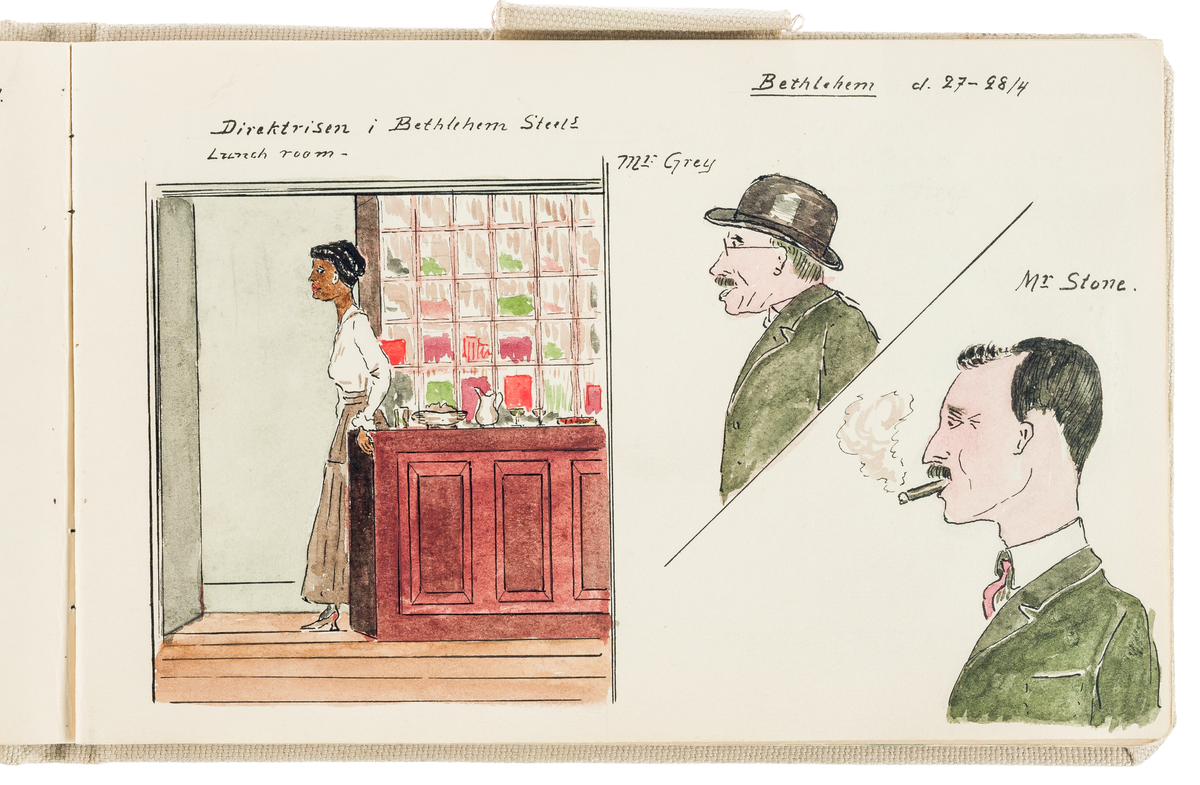 Bethlehem d. 27-28/4
Direktrisen i Bethlehem Steels
Lunch room-
Mr Grey
Mr Stone.